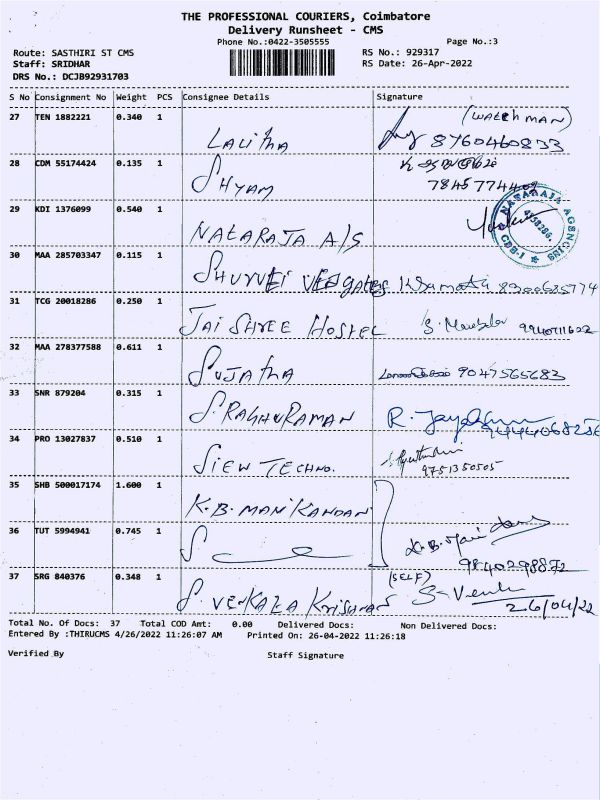 THE PROFESSIONAL COURIERS, Coimbatore
Delivery Runsheet - CMS
Phone No.:0422-3505555 Page No.:3
Route: SASTHIRI ST CMS RS No.: 929317
Staff: SRIDHAR RS Date: 26-Apr-2022
DRS No.: DCJB92931703
S No Consignment No Weight PCS Consignee Details Signature
27 TEN 1882221 0.340 1 (WATCH MAN)
Lalitha 8760460833
28 CDM 55174424 0.135 1
Shyam
29 KDI 1376099 0.540 1
NATARAJA A/S
NATARAJA AGENCIES
CBE-1
30 MAA 285703347 0.115 1
31 TCG 20018286 0.250 1
JAI SHREE HOSTEL
32 MAA 278377588 0.611 1
SUJATHA 9047565683
33 SNR 879204 0.315 1
S. RAGHURAMAN
34 PRO 13027837 0.510 1
SIEW TECHNO. 9751350505
35 SHB 500017174 1.600 1
K.B. MANIKANDAN
36 TUT 5994941 0.745 1
9840298872
37 SRG 840376 0.348 1 (SELF)
S. VENKATA KRISHNAN S-Venk
26/04/22
Total No. Of Docs: 37 Total COD Amt: 0.00 Delivered Docs: Non Delivered Docs:
Entered By :THIRUCMS 4/26/2022 11:26:07 AM Printed On: 26-04-2022 11:26:18
Verified By Staff Signature